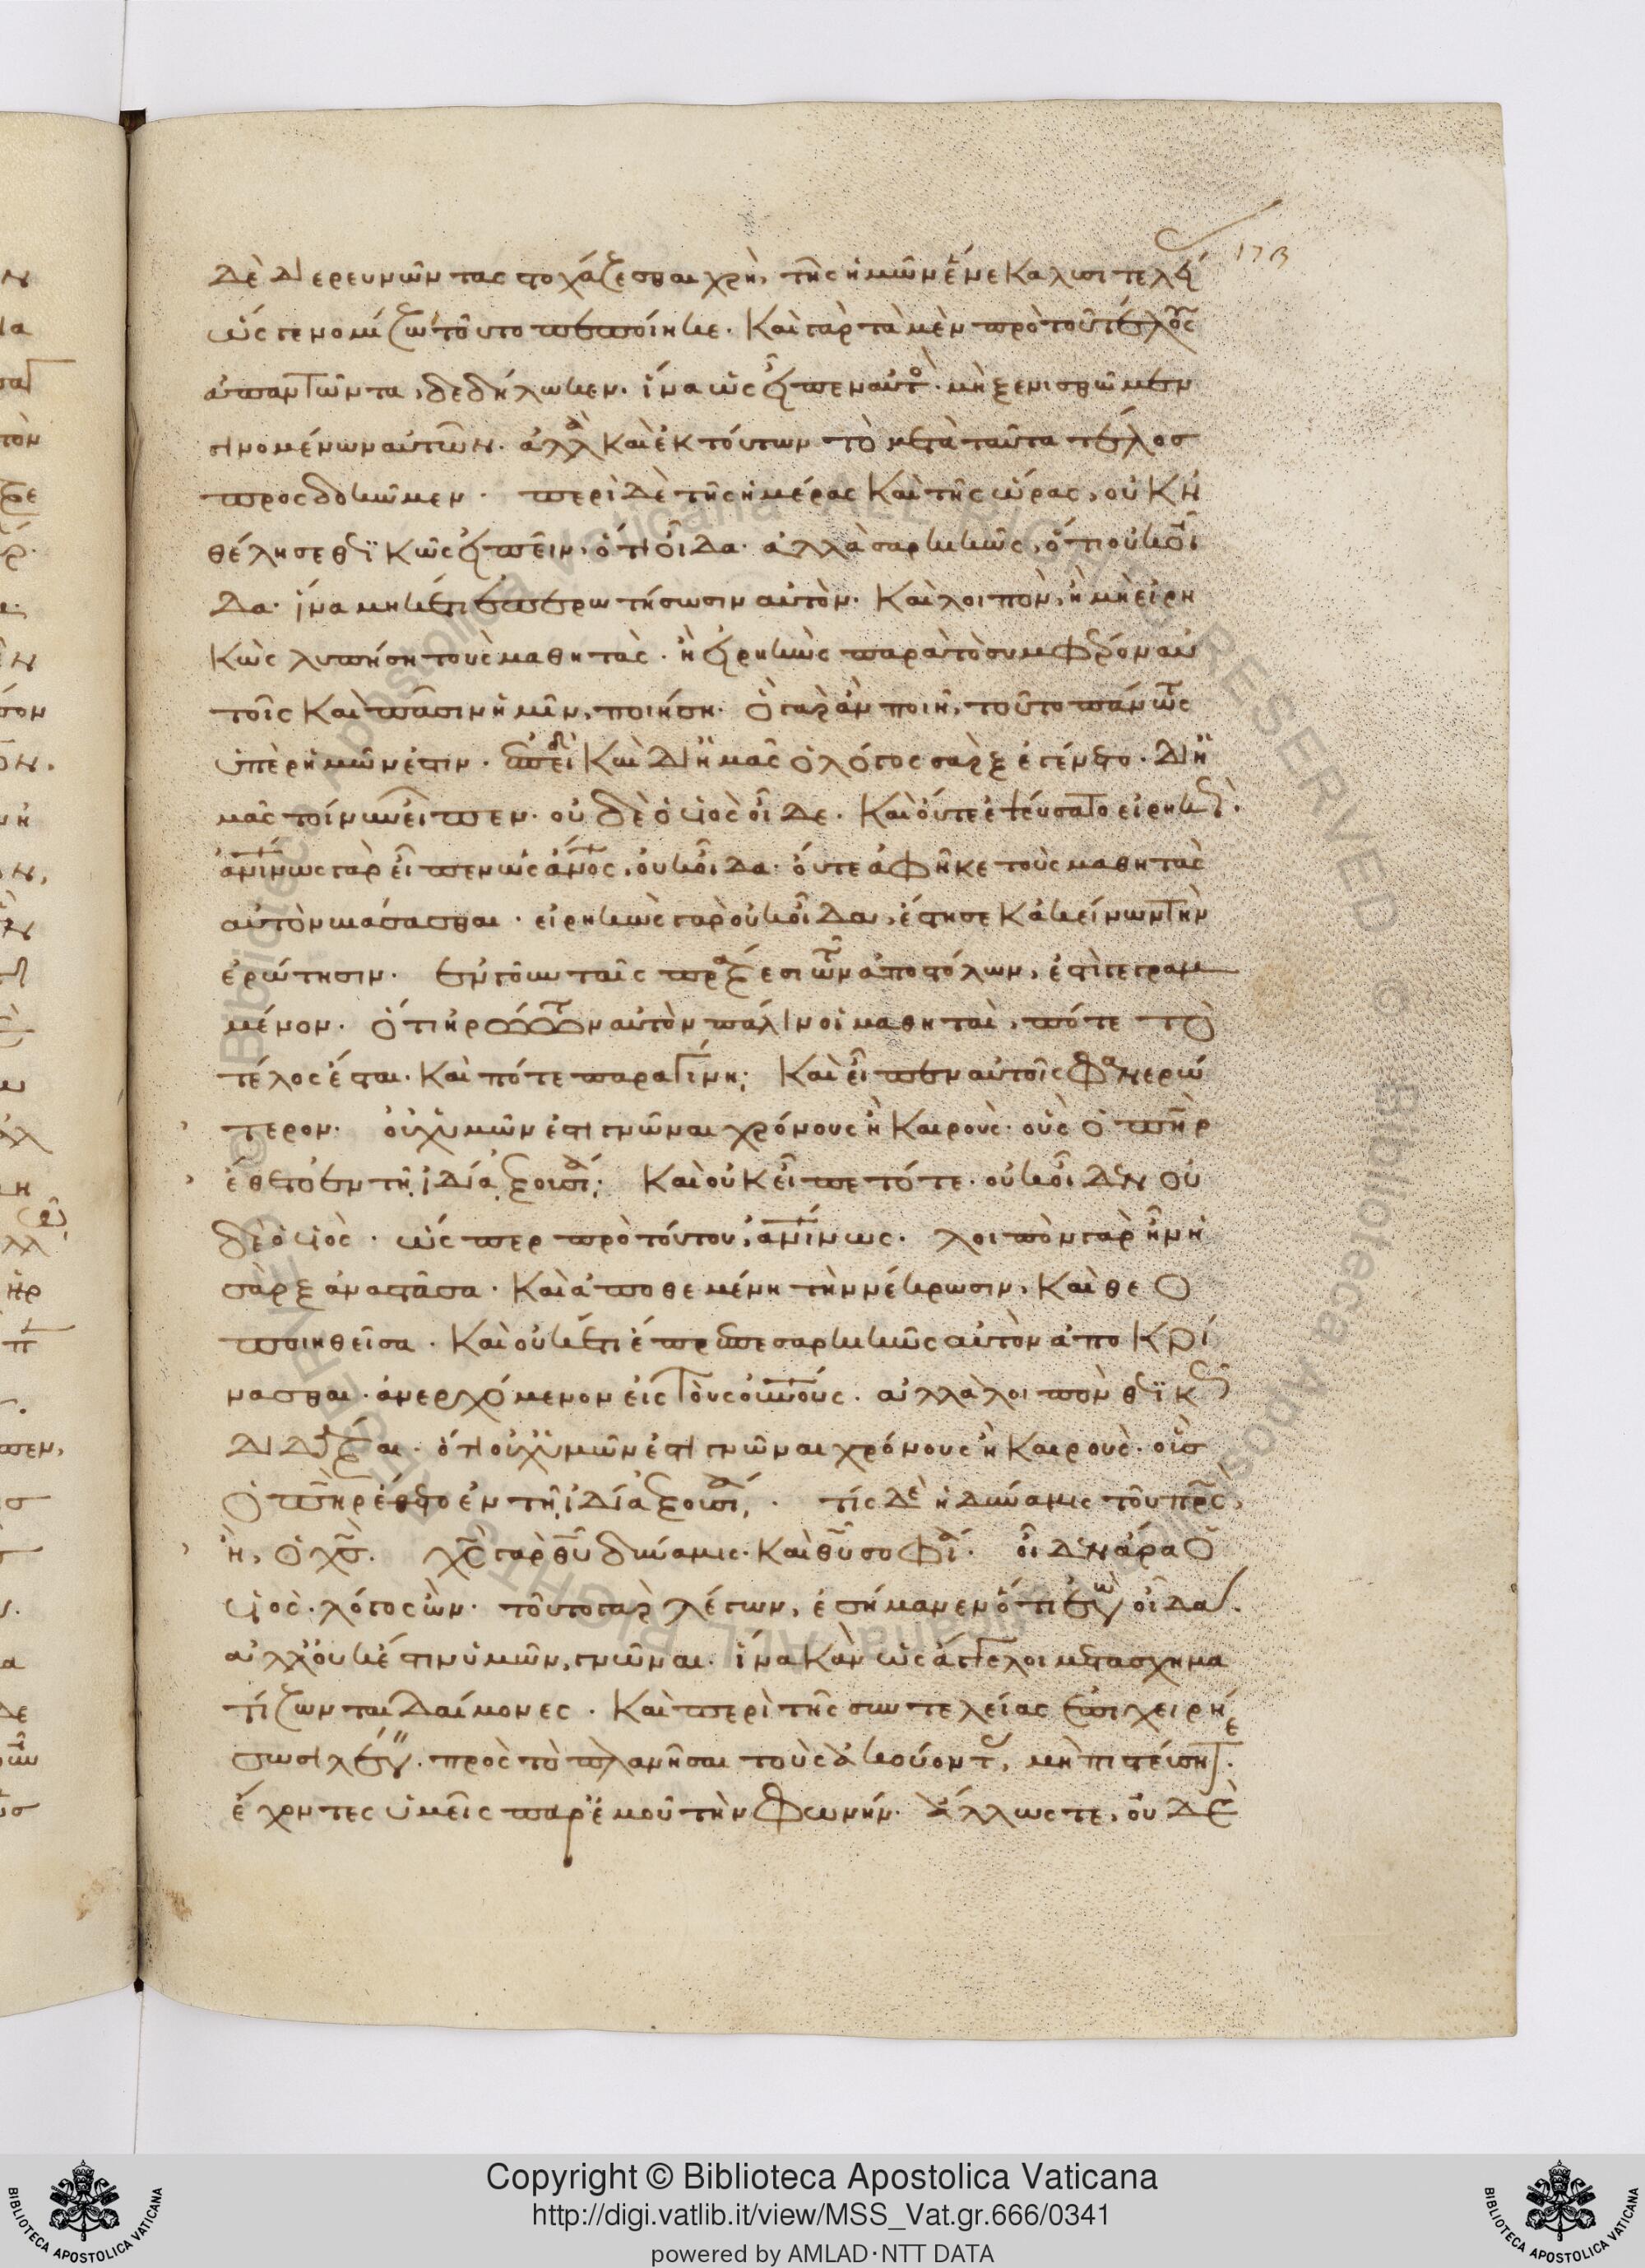 173
δὲ διερευνῶντας στοχάζεσθαι χρὴ, τῆς ἡμῶν ἕνεκα λυσιτελεί
ὥς γε νομίζω τοῦτο πεποίηκε. καὶ γὰρ τὰ μὲν πρὸ τοῦ τέλους
ἀπαντῶντα, δεδήλωκεν. ἵνα ὡς εἶπεν αὐτὸς. μὴ ξενισθῶμεν
γινομένων αὐτῶν. ἀλλὰ καὶ ἐκ τούτων τὸ μετὰ ταῦτα τέλος
προσδοκῶμεν. περὶ δὲ τῆς ἡμέρας καὶ τῆς ὥρας, οὐκ ἠ
θέλησε θεϊκῶς εἰπεῖν, ὅτι οἶδα. ἀλλὰ σαρκικῶς, ὅτι οὐκ οἶ
δα. ἵνα μηκέτι ἐπερωτήσωσιν αὐτὸν. καὶ λοιπὸν, ἢ μὴ εἰρη
κὼς λυπήσῃ τοὺς μαθητὰς. ἢ εἰρηκὼς παρὰ τὸ συμφέρον αὐ
τοῖς καὶ πᾶσιν ἡμῖν, ποιήσῃ. ὃ γὰρ ἂν ποιῇ, τοῦτο πάντως
ὑπὲρ ἡμῶν ἐστιν. ἐπειδὴ καὶ δι' ἡμᾶς ὁ λόγος σὰρξ ἐγένετο. δι' ἡ
μᾶς τοίνυν εἶπεν. οὐδὲ ὁ υἱὸς οἶδε. καὶ οὔτε ἐψεύσατο εἰρηκὼς.
ἀνίνως γὰρ εἶπεν ὡς ἄνος, οὐκ οἶδα. οὔτε ἀφῆκε τοὺς μαθητὰς
αὐτὸν βιάσασθαι. εἰρηκὼς γὰρ οὐκ οἶδα, ἔστησε κἀκείνων τὴν
ἐρώτησιν. ἐν γοῦν ταῖς πράξεσι τῶν ἀποστόλων, ἐστὶ γεγραμ
μένον. ὅτι ἠρώτων αὐτὸν πάλιν οἱ μαθηταὶ, πότε τὸ
τέλος ἔσται. καὶ πότε παραγίνῃ; καὶ εἶπεν αὐτοῖς φανερώ
τερον. οὐχ ὑμῶν ἐστι γνῶναι χρόνους ἢ καιροὺς. οὓς ὁ πὴρ
ἔθετο ἐν τῇ ἰδίᾳ ἐξουσίᾳ; καὶ οὐκ εἶπε τότε. οὐκ οἶδεν οὐ
δὲ ὁ υἱὸς. ὥσπερ πρὸ τούτου, ἀνίνως. λοιπὸν γὰρ ἦν ἡ
σὰρξ ἀναστᾶσα. καὶ ἀποθεμένη τὴν νέκρωσιν, καὶ θεο
ποιηθεῖσα. καὶ οὐκέτι ἔπρεπε σαρκικῶς αὐτὸν ἀποκρί
νασθαι. ἀνερχόμενον εἰς τοὺς οὐνοὺς. ἀλλὰ λοιπὸν θεϊκῶς
διδάξαι. ὅτι οὐχ ὑμῶν ἐστι γνῶναι χρόνους ἢ καιροὺς. οὓς
ὁ πὴρ ἔθετο ἐν τῇ ἰδίᾳ ἐξουσίᾳ. τίς δὲ ἡ δύναμις τοῦ πρς,
ἢ, ὁ χς. χς γὰρ θυ δύναμις. καὶ θυ σοφία. οἶδεν ἄρα ὁ
υἱὸς. λόγος ὢν. τοῦτο γὰρ λέγων, ἐσήμανεν ὅτι ἐγὼ οἶδα.
ἀλλ' οὐκ ἔστιν ὑμῶν, γνῶναι. ἵνα κἂν ὡς ἄγγελοι μετασχημα
τίζωνται δαίμονες. καὶ περὶ τῆς συντελείας ἐπιχειρή
σωσι λέγειν. πρὸς τὸ πλανῆσαι τοὺς ἀκούοντας, μὴ πιστεύσητε.
ἔχοντες ὑμεῖς παρ' ἐμοῦ τὴν φωνήν. ἄλλως τε, οὐδὲ
Copyright © Biblioteca Apostolica Vaticana
http://digi.vatlib.it/view/MSS_Vat.gr.666/0341
powered by AMLAD·NTT DATA